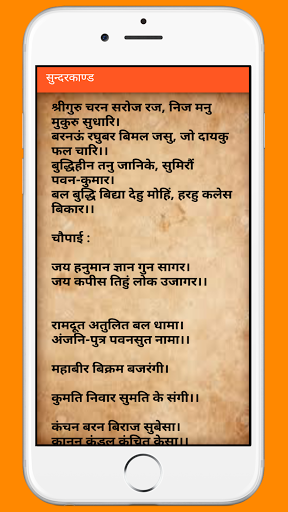 सुन्दरकाण्ड
श्रीगुरु चरन सरोज रज, निज मनु
मुकुरु सुधारि।
बरनऊं रघुबर बिमल जसु, जो दायकु
फल चारि।।
बुद्धिहीन तनु जानिके, सुमिरौं
पवन-कुमार।
बल बुद्धि बिद्या देहु मोहिं, हरहु कलेस
बिकार।।
चौपाई :
जय हनुमान ज्ञान गुन सागर।
जय कपीस तिहुं लोक उजागर।।
रामदूत अतुलित बल धामा।
अंजनि-पुत्र पवनसुत नामा।।
महाबीर बिक्रम बजरंगी।
कुमति निवार सुमति के संगी।।
कंचन बरन बिराज सुबेसा।
कानन कुंडल कुंचित केसा।।